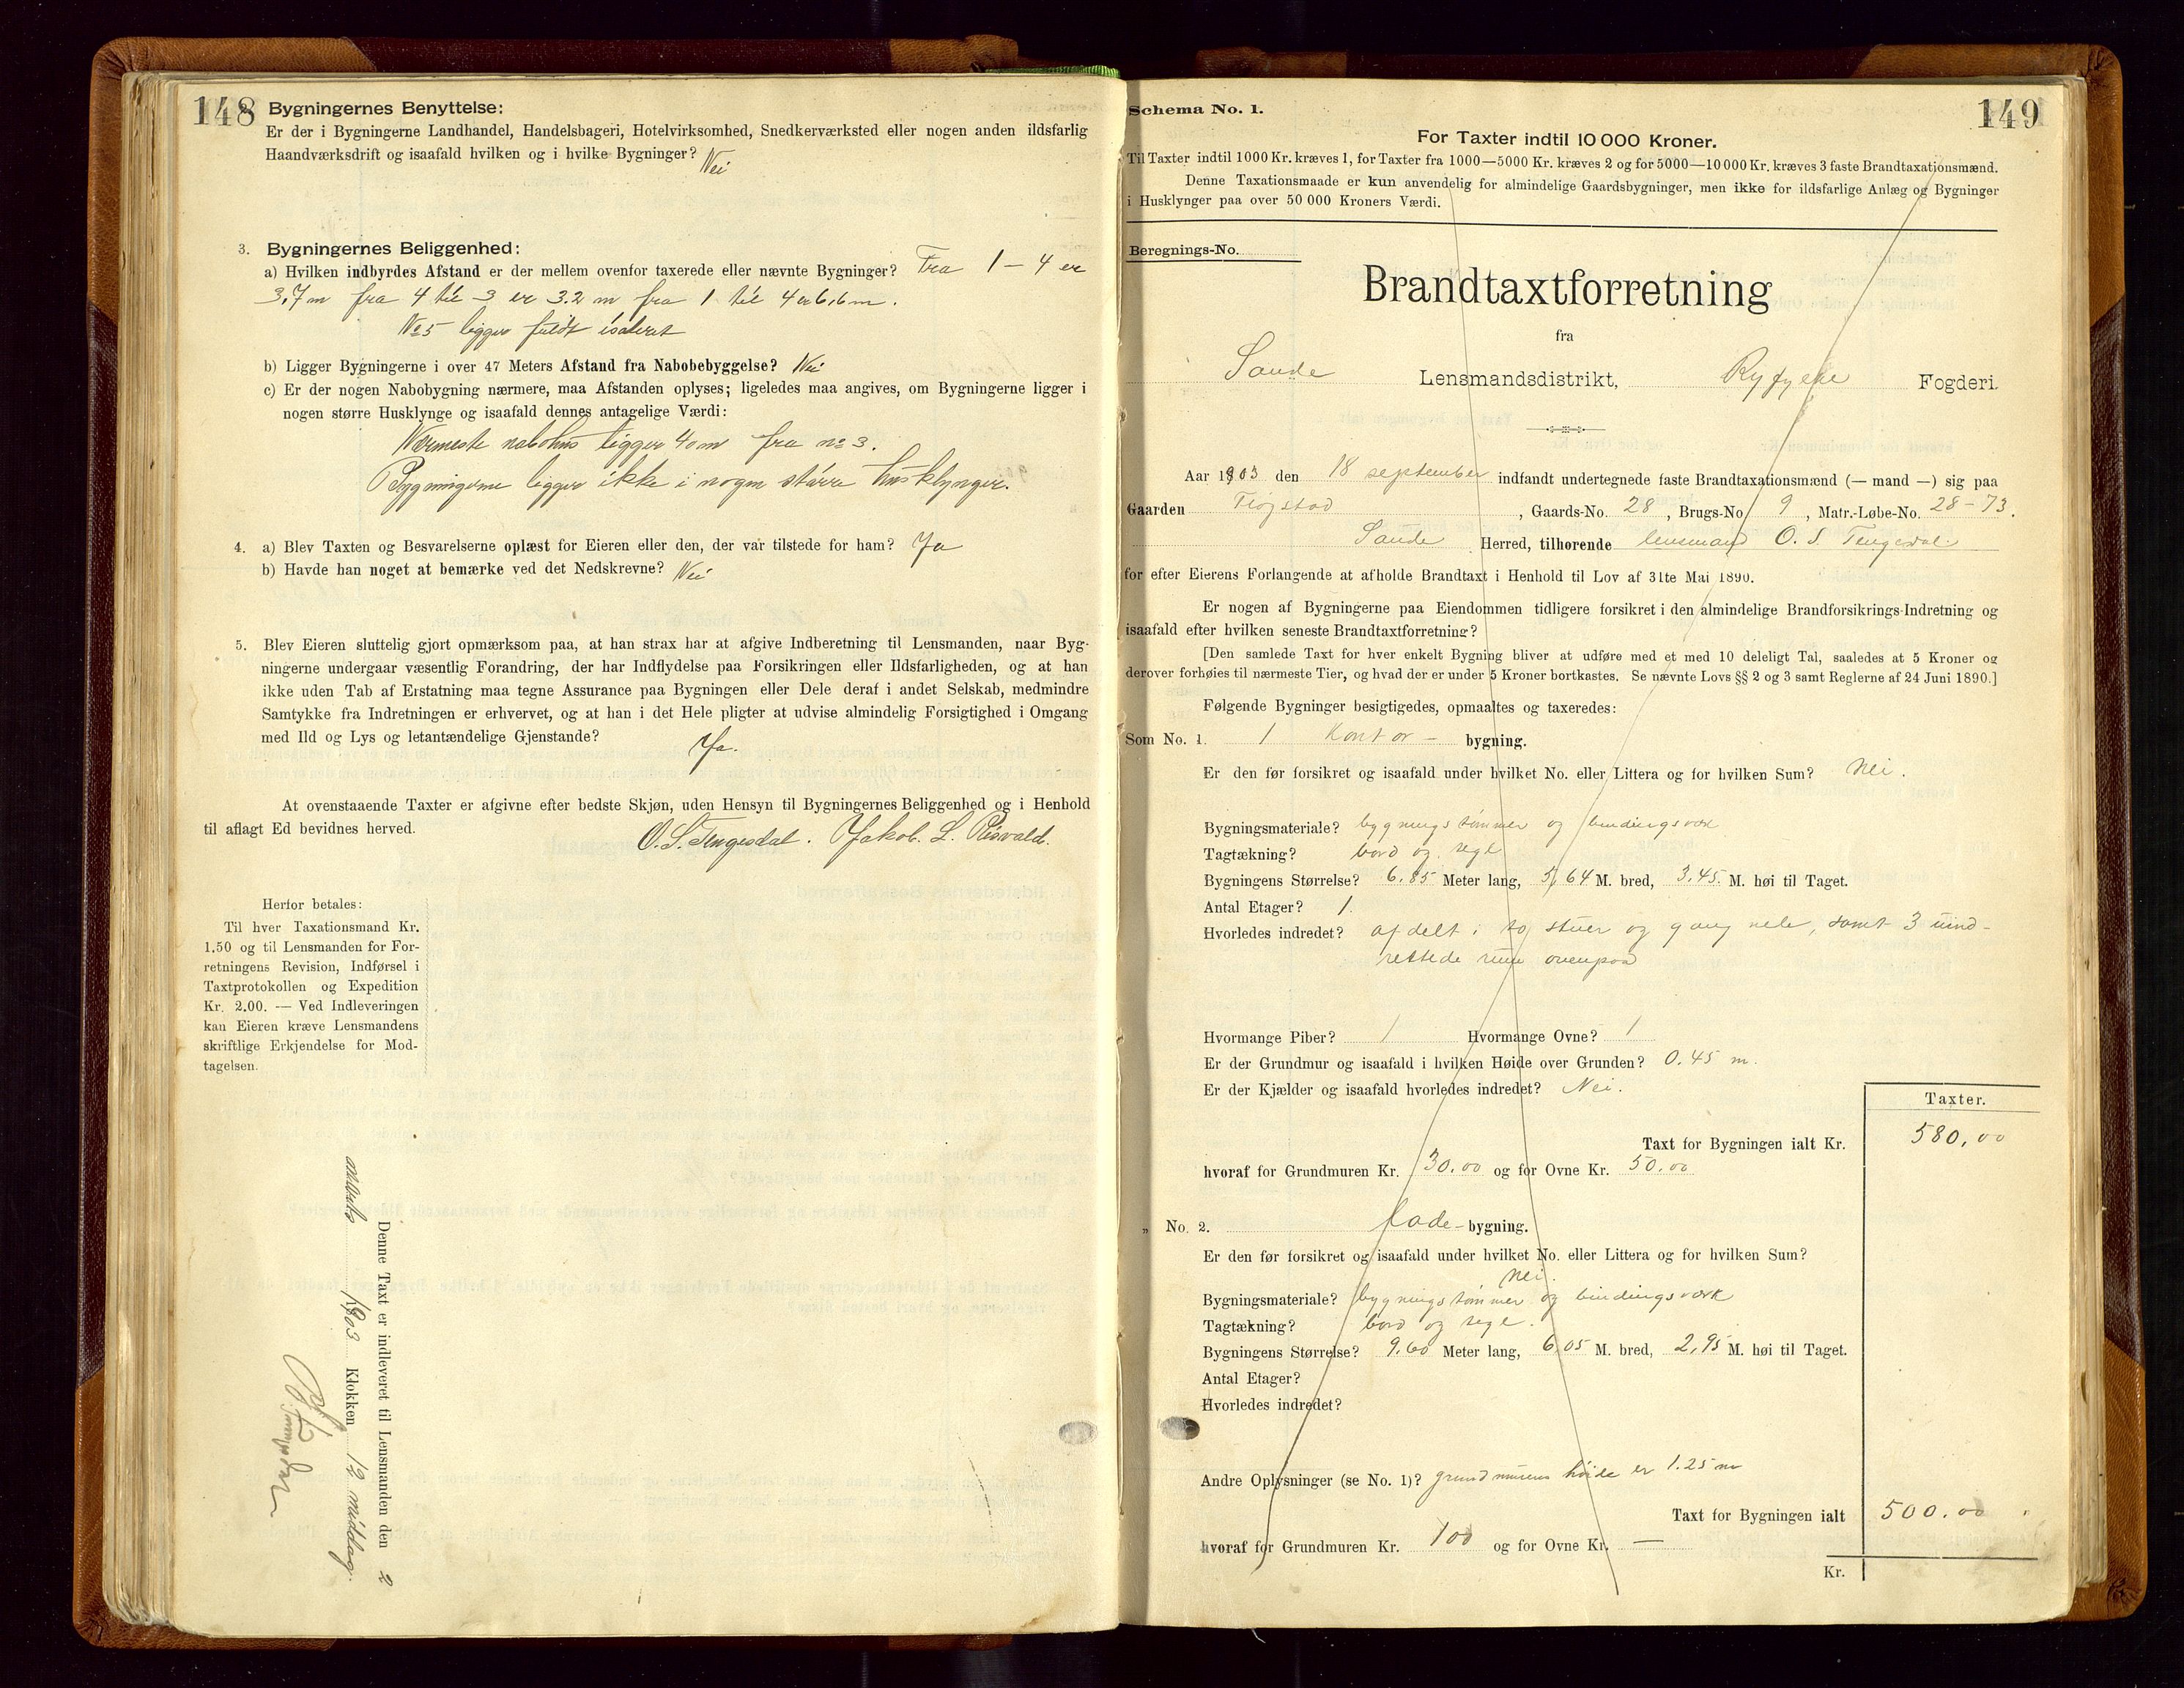 148
Bygningernes Benyttelse:
Er der i Bygningerne Landhandel, Handelsbageri, Hotelvirksomhed, Snedkerværksted eller nogen anden ildsfarlig
Haandværksdrift og isaafald hvilken og i hvilke Bygninger? Nei
3. Bygningernes Beliggenhed:
a) Hvilken indbyrdes Afstand er der mellem ovenfor taxerede eller nævnte Bygninger? Fra 1 – 4 er
3,7 m fra 4 til 3 er 3.2 m fra 1 til 4 er 6,6 m.
No 5 ligger fuldt isoleret
b) Ligger Bygningerne i over 47 Meters Afstand fra Nabobebyggelse? Nei
c) Er der nogen Nabobygning nærmere, maa Afstanden oplyses; ligeledes maa angives, om Bygningerne ligger i
nogen større Husklynge og isaafald dennes antagelige Værdi:
Nærmeste nabohus ligger 40 m fra no 3.
Bygningerne ligger ikke i nogen større husklynger.
4. a) Blev Taxten og Besvarelserne oplæst for Eieren eller den, der var tilstede for ham? Ja
b) Havde han noget at bemærke ved det Nedskrevne? Nei
5. Blev Eieren sluttelig gjort opmærksom paa, at han strax har at afgive Indberetning til Lensmanden, naar Byg-
ningerne undergaar væsentlig Forandring, der har Indflydelse paa Forsikringen eller Ildsfarligheden, og at han
ikke uden Tab af Erstatning maa tegne Assurance paa Bygningen eller Dele deraf i andet Selskab, medmindre
Samtykke fra Indretningen er erhvervet, og at han i det Hele pligter at udvise almindelig Forsigtighed i Omgang
med Ild og Lys og letantændelige Gjenstande? Ja.
At ovenstaaende Taxter er afgivne efter bedste Skjøn, uden Hensyn til Bygningernes Beliggenhed og i Henhold
til aflagt Ed bevidnes herved.
O. S. Tengesdal. Jakob. L. Risvold.
Herfor betales:
Til hver Taxationsmand Kr.
1.50 og til Lensmanden for For-
retningens Revision, Indførsel i
Taxtprotokollen og Expedition
Kr. 2.00. — Ved Indleveringen
kan Eieren kræve Lensmandens
skriftlige Erkjendelse for Mod-
tagelsen.
Denne Taxt er indleveret til Lensmanden den 2
marts 1903 Klokken 12 middag.
Schema No. 1.
149
For Taxter indtil 10 000 Kroner.
Til Taxter indtil 1000 Kr. kræves 1, for Taxter fra 1000—5000 Kr. kræves 2 og for 5000—10 000 Kr. kræves 3 faste Brandtaxationsmænd.
Denne Taxationsmaade er kun anvendelig for almindelige Gaardsbygninger, men ikke for ildsfarlige Anlæg og Bygninger
i Husklynger paa over 50 000 Kroners Værdi.
Beregnings-No.
Brandtaxtforretning
fra
Sande Lensmandsdistrikt, Ryfylke Fogderi.
Aar 1903 den 18 september indfandt undertegnede faste Brandtaxationsmænd (— mand —) sig paa
Gaarden Tiøgstad, Gaards-No. 28, Brugs-No. 9, Matr.-Løbe-No. 28 – 73.
Sande Herred, tilhørende lensmand O. S. Tengesdal
for efter Eierens Forlangende at afholde Brandtaxt i Henhold til Lov af 31te Mai 1890.
Er nogen af Bygningerne paa Eiendommen tidligere forsikret i den almindelige Brandforsikrings-Indretning og
isaafald efter hvilken seneste Brandtaxtforretning?
[Den samlede Taxt for hver enkelt Bygning bliver at udføre med et med 10 deleligt Tal, saaledes at 5 Kroner og
derover forhøies til nærmeste Tier, og hvad der er under 5 Kroner bortkastes. Se nævnte Lovs §§ 2 og 3 samt Reglerne af 24 Juni 1890.]
Følgende Bygninger besigtigedes, opmaaltes og taxeredes:
Som No. 1. 1 Kontor – bygning.
Er den før forsikret og isaafald under hvilket No. eller Littera og for hvilken Sum? Nei.
Bygningsmateriale? bygningstømmer og bindingsverk
Tagtækning? bord og tegl
Bygningens Størrelse? 6.85 Meter lang, 5,64 M. bred, 3.45. M. høi til Taget.
Antal Etager? 1.
Hvorledes indredet? afdelt i to stuer og gang nede, samt 3 uind-
rettede rum ovenpaa
Hvormange Piber? 1 Hvormange Ovne? 1
Er der Grundmur og isaafald i hvilken Høide over Grunden? 0.45 m.
Er der Kjælder og isaafald hvorledes indredet? Nei.
Taxter.
Taxt for Bygningen ialt Kr. 580,00
hvoraf for Grundmuren Kr. 30.00 og for Ovne Kr. 50.00
„ No. 2. lade – bygning.
Er den før forsikret og isaafald under hvilket No. eller Littera og for hvilken Sum?
nei.
Bygningsmateriale? bygningstømmer og bindingsverk
Tagtækning? bord og tegl.
Bygningens Størrelse? 9.60 Meter lang, 6.05 M. bred, 2,95 M. høi til Taget.
Antal Etager?
Hvorledes indredet?
Andre Oplysninger (se No. 1)? grundmurens høide er 1.25 m
Taxt for Bygningen ialt 500.00
hvoraf for Grundmuren Kr. 100 og for Ovne Kr. —
Kr.